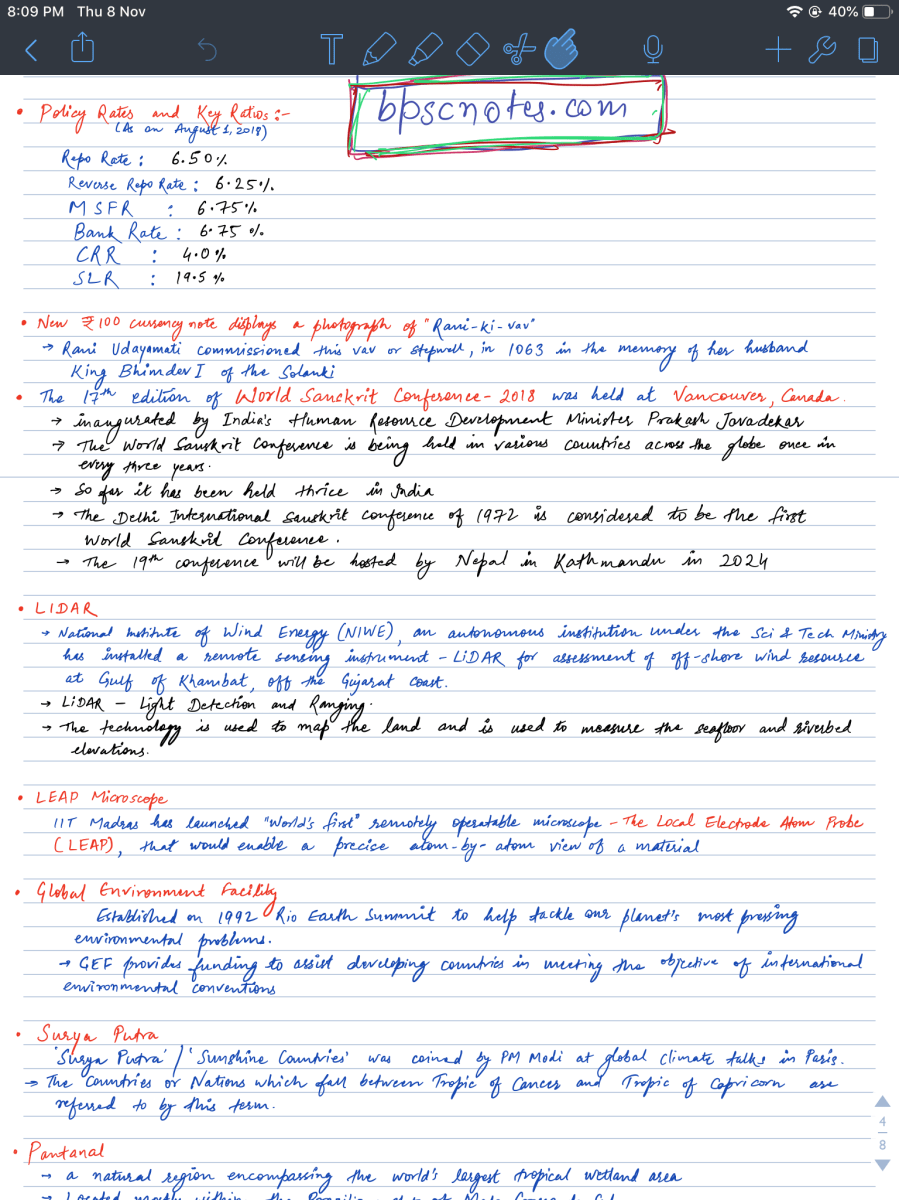 8:09 PM Thu 8 Nov
40%
T
bpscnotes.com
• Policy Rates and Key Ratios :-
(As on August 1, 2018)
Repo Rate : 6.50%
Reverse Repo Rate : 6.25%
MSFR : 6.75%
Bank Rate : 6.75 %
CRR : 4.0%
SLR : 19.5 %
• New ₹100 currency note displays a photograph of "Rani-ki-vav"
→ Rani Udayamati commissioned this vav or stepwell, in 1063 in the memory of her husband
King Bhimdev I of the Solanki
• The 17th edition of World Sanskrit Conference - 2018 was held at Vancouver, Canada.
→ inaugurated by India's Human Resource Development Minister Prakash Javadekar
→ The World Sanskrit Conference is being held in various countries across the globe once in
every three years.
→ So far it has been held thrice in India
→ The Delhi International Sanskrit Conference of 1972 is considered to be the first
World Sanskrit Conference.
→ The 19th conference will be hosted by Nepal in Kathmandu in 2024
• LIDAR
→ National Institute of Wind Energy (NIWE), an autonomous institution under the Sci & Tech Ministry
has installed a remote sensing instrument - LiDAR for assessment of off-shore wind resource
at Gulf of Khambat, off the Gujarat coast.
→ LiDAR - Light Detection and Ranging.
→ The technology is used to map the land and is used to measure the seafloor and riverbed
elevations.
• LEAP Microscope
IIT Madras has launched "World's first" remotely operatable microscope - The Local Electrode Atom Probe
(LEAP), that would enable a precice atom-by-atom view of a material
• Global Environment Facility
Established on 1992 Rio Earth Summit to help tackle our planet's most pressing
environmental problems.
→ GEF provides funding to assist developing countries in meeting the objective of international
environmental conventions
• Surya Putra
'Surya Putra' / 'Sunshine Countries' was coined by PM Modi at global climate talks in Paris.
→ The Countries or Nations which fall between Tropic of Cancer and Tropic of Capricorn are
referred to by this term.
4
8
• Pantanal
→ a natural region encompassing the world's largest tropical wetland area